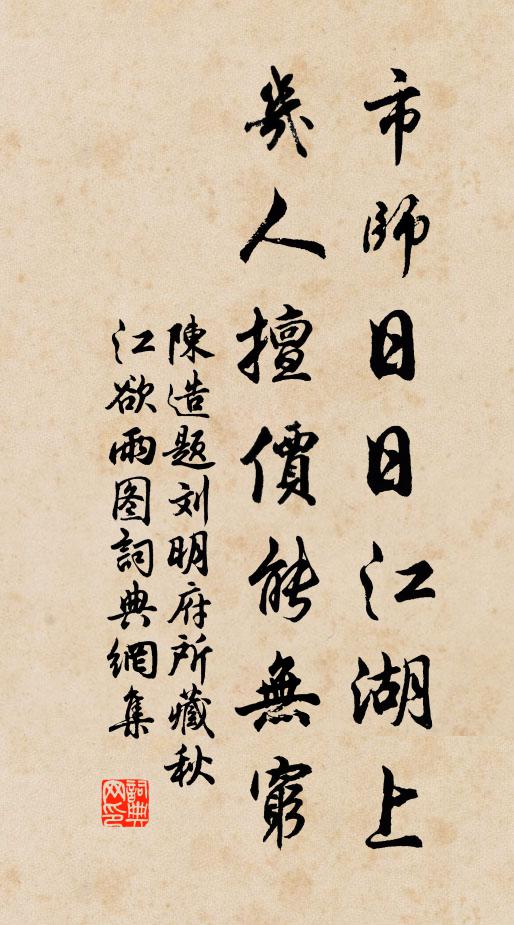 市師日日江湖上
幾人擅價能無窮
陳造題刘明府所藏秋
江欲雨图詞典網集
詞典
网印